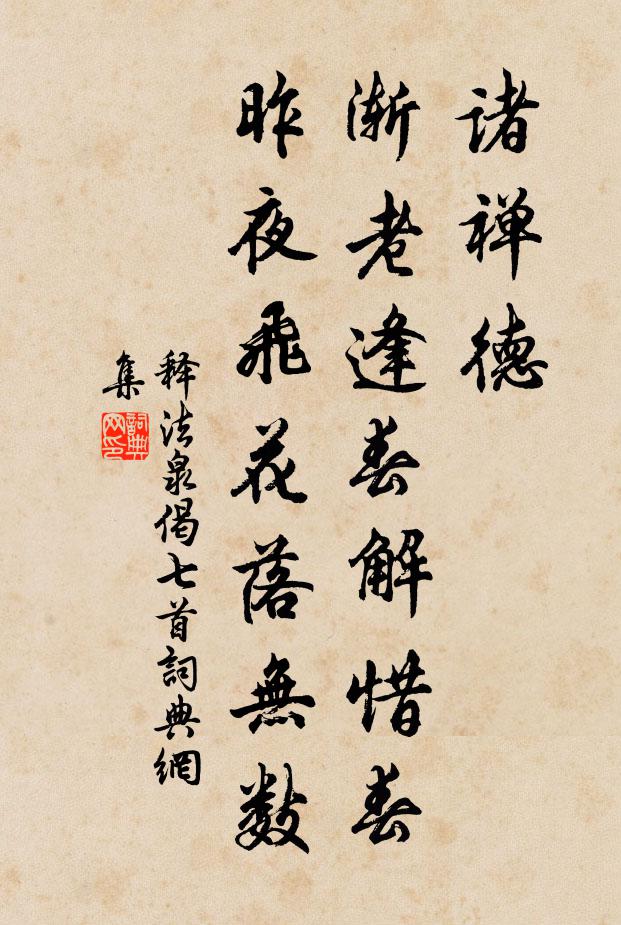 諸禅德
渐老逢春解惜春
昨夜飛花落無数
释法泉偈七首詞典網
集
詞典网印